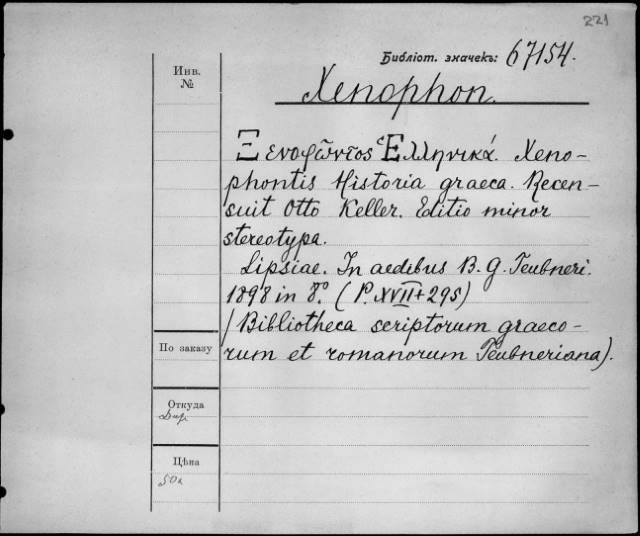 221
Библіот. значекъ: 67154.
Инв.
№
Xenophon.
Ξενοφῶντος Ἑλληνικά. Xeno-
phontis Historia graeca. Recen-
suit Otto Keller. Editio minor
stereotypa.
Lipsiae. In aedibus B. G. Teubneri.
1898 in 8.° (P. XVII+295)
(Bibliotheca scriptorum graeco-
rum et romanorum Teubneriana).
По заказу
Откуда
Цѣна
50